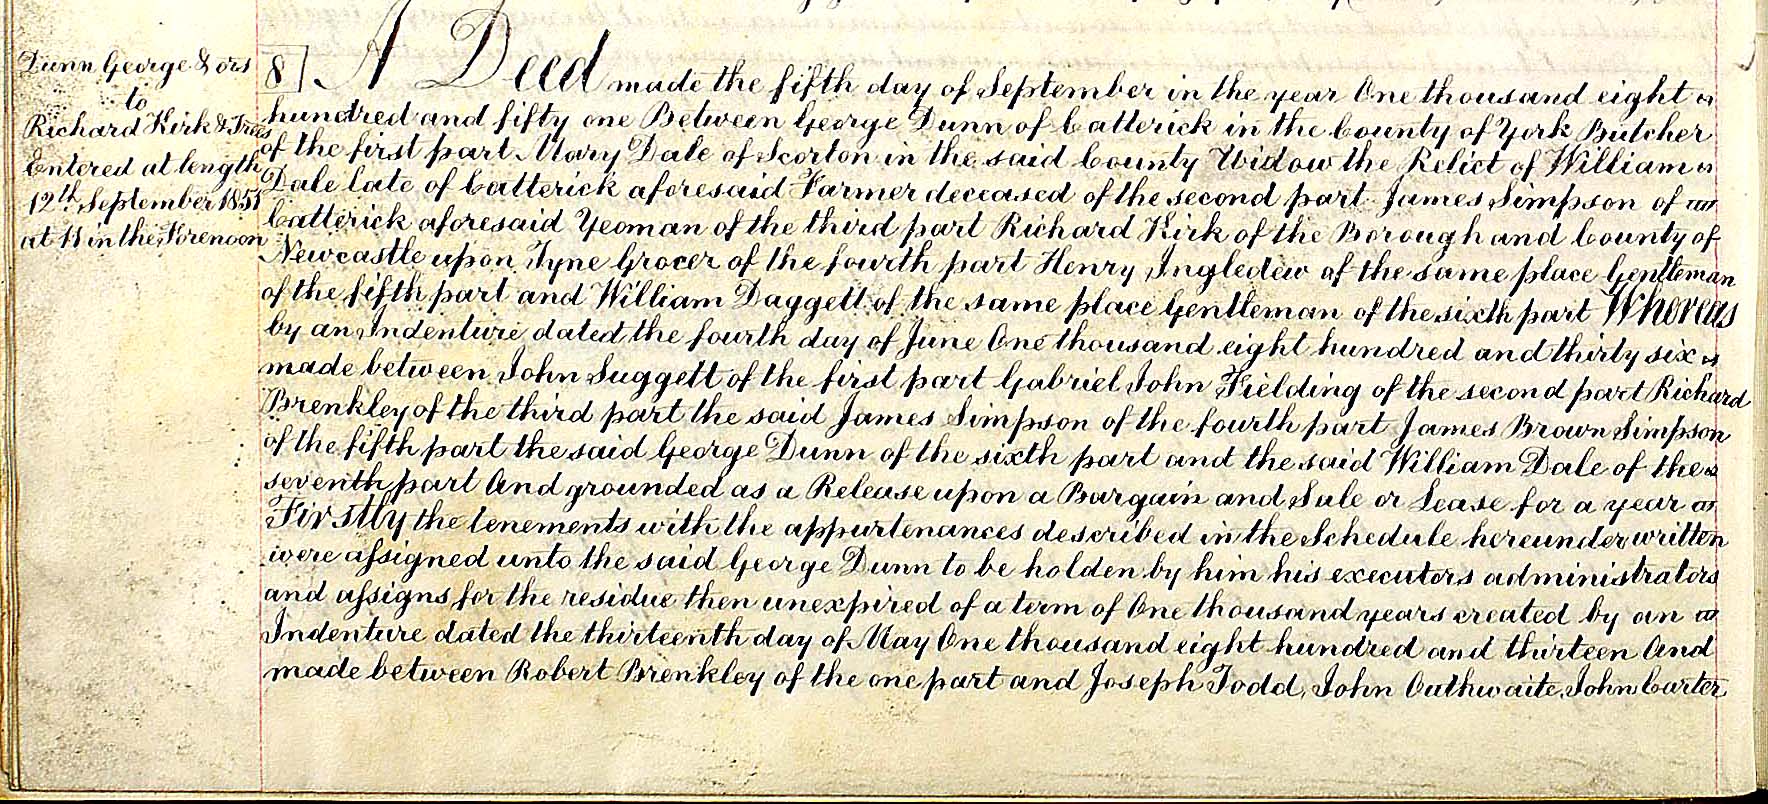 Dunn George & ors
to
Richard Kirk & Trees
Entered at length
12th September 1851
at 11 in the Forenoon
8 A Deed made the fifth day of September in the year One thousand eight
hundred and fifty one Between George Dunn of Catterick in the County of York Butcher
of the first part Mary Dale of Scorton in the said County Widow the Relict of William
Dale late of Catterick aforesaid Farmer deceased of the second part James Simpson of
Catterick aforesaid Yeoman of the third part Richard Kirk of the Borough and County of
Newcastle upon Tyne Grocer of the fourth part Henry Ingledew of the same place Gentleman
of the fifth part and William Daggett of the same place Gentleman of the sixth part Whereas
by an Indenture dated the fourth day of June One thousand eight hundred and thirty six
made between John Suggett of the first part Gabriel John Fielding of the second part Richard
Brenkley of the third part the said James Simpson of the fourth part James Brown Simpson
of the fifth part the said George Dunn of the sixth part and the said William Dale of the
seventh part And grounded as a Release upon a Bargain and Sale or Lease for a year
Firstly the tenements with the appurtenances described in the Schedule hereunder written
were assigned unto the said George Dunn to be holden by him his executors administrators
and assigns for the residue then unexpired of a term of One thousand years created by an
Indenture dated the thirteenth day of May One thousand eight hundred and thirteen And
made between Robert Brenkley of the one part and Joseph Todd, John Outhwaite, John Carter